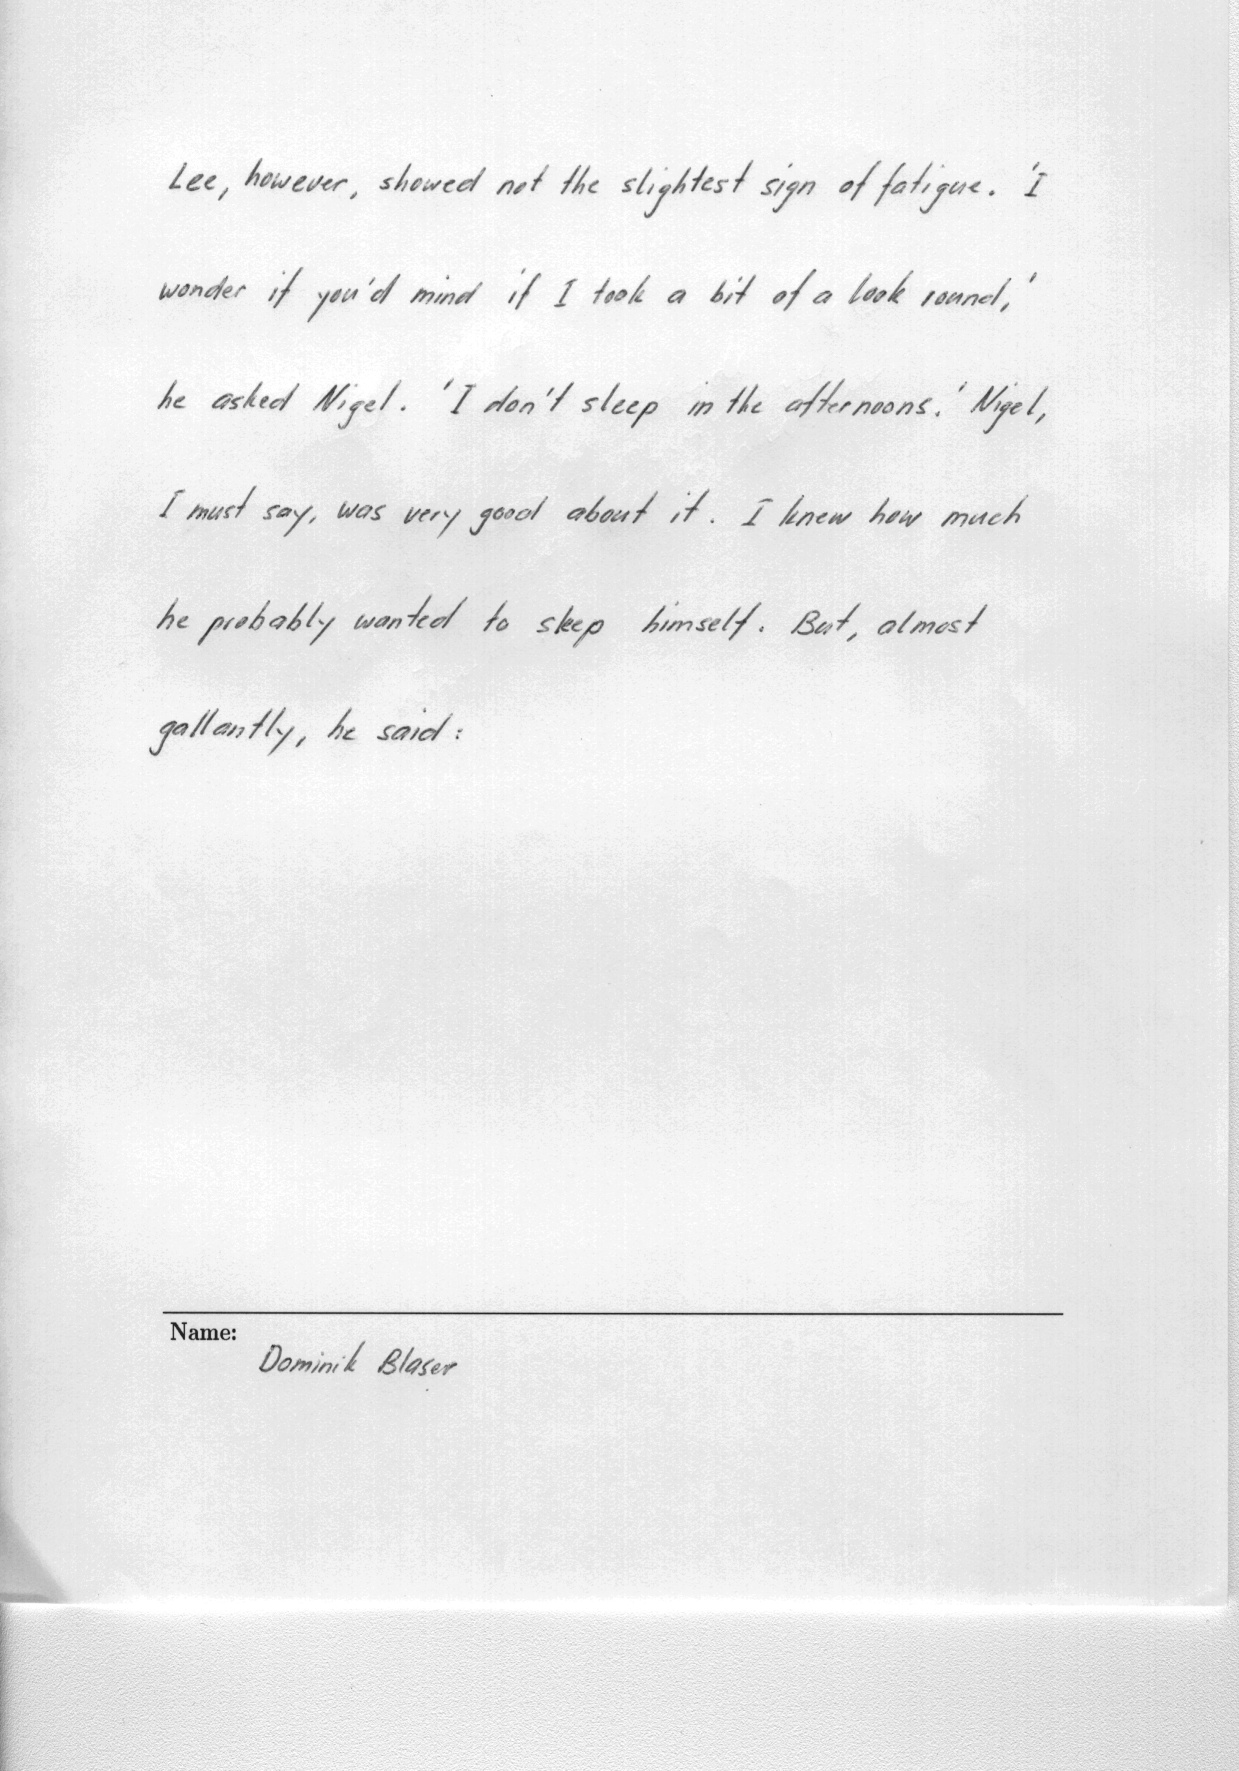 Lee, however, showed not the slightest sign of fatigue. 'I
wonder if you'd mind if I took a bit of a look round,'
he asked Nigel. 'I don't sleep in the afternoons.' Nigel,
I must say, was very good about it. I knew how much
he probably wanted to sleep himself. But, almost
gallantly, he said:
Name:
Dominik Blaser